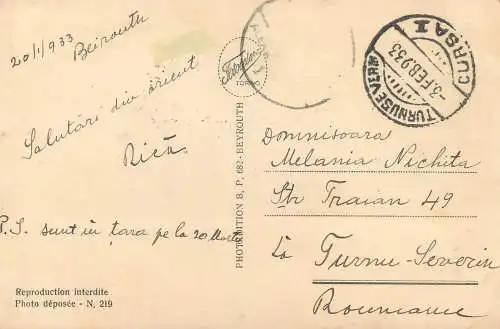 20/1/933
Beirouth
Salutări din orient
Rică
P.S. sunt în țara pe la 20 Martie
Reproduction interdite
Photo déposée - N. 219
PHOTOEDITION B. P. 682 - BEYROUTH
TORINO
CURSA I
-3.FEB.933
TURNUSEVERIN
Domnisoara
Melania Nichita
Str Traian 49
La Turnu-Severin
Roumanie